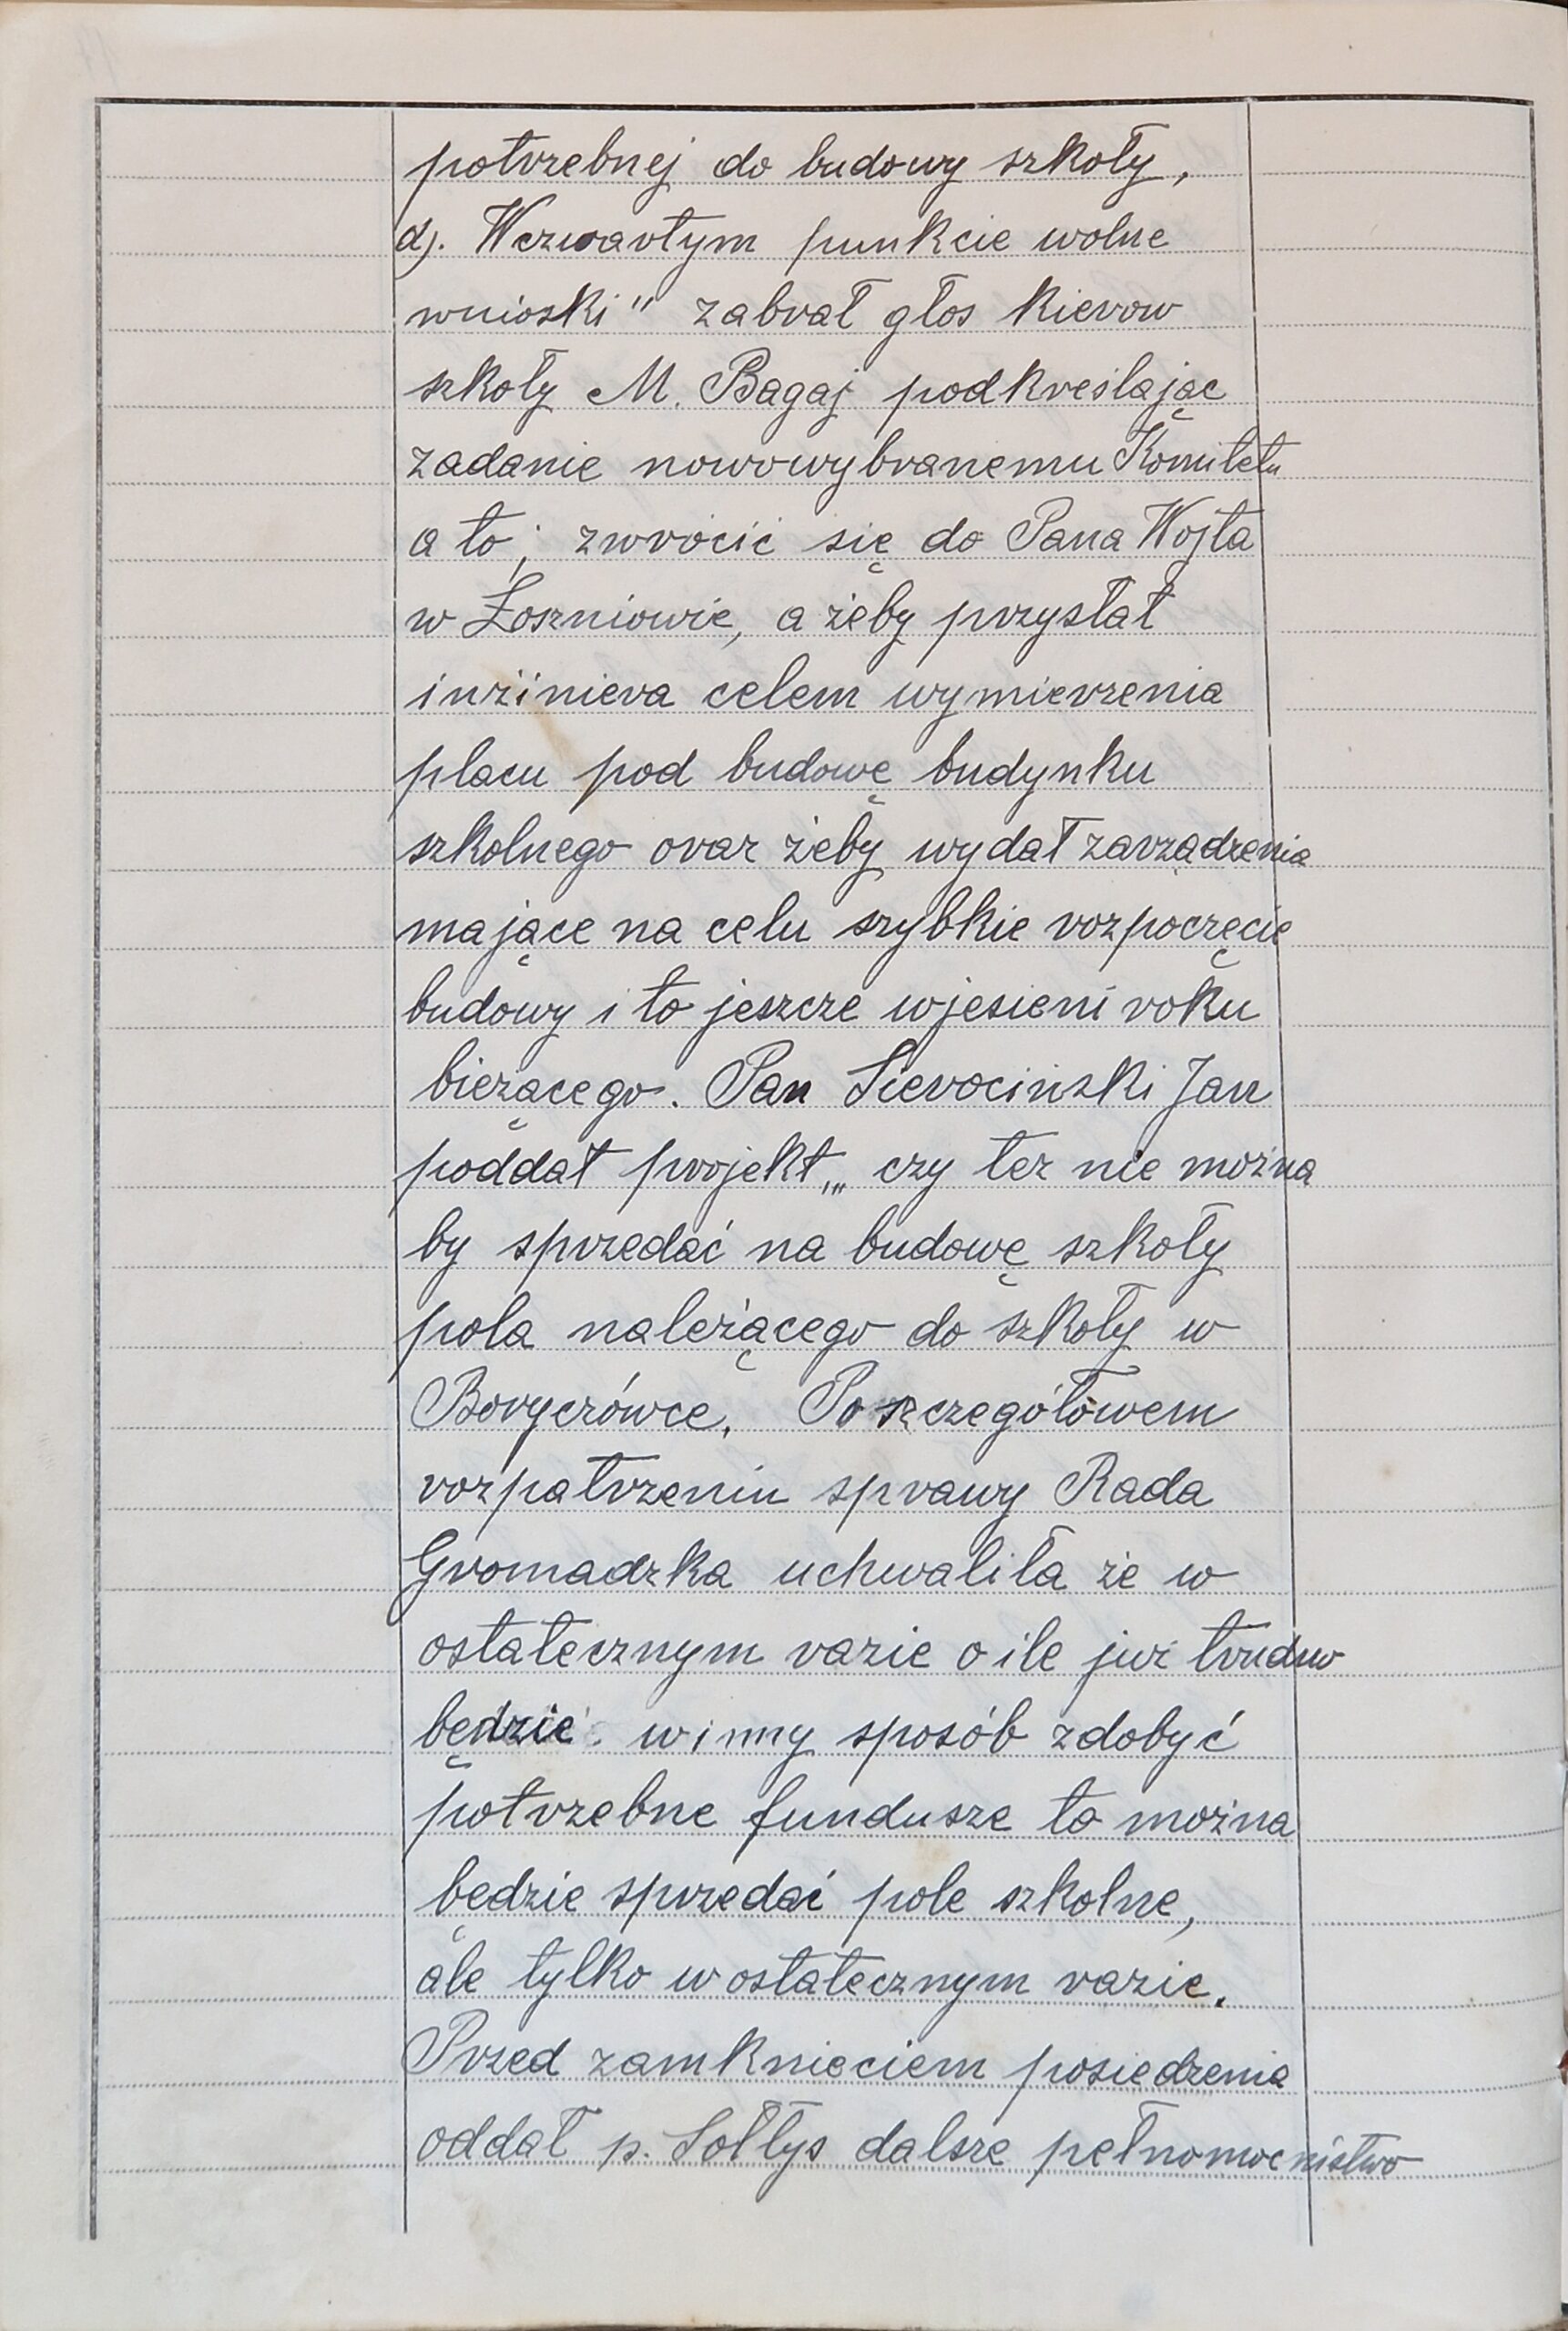 potrzebnej do budowy szkoły,
d). Wczwartym punkcie wolne
wnioski" zabrał głos kierow
szkoły M. Bagaj podkreślając
zadanie nowowybranemu Komitetu
a to; zwrócić się do Pana Wójta
w Łoszniowie, a żeby przysłał
inżiniera celem wymierzenia
placu pod budowę budynku
szkolnego oraz żeby wydał zarządzenia
mające na celu szybkie rozpoczęcie
budowy i to jeszcze wjesieni roku
bieżącego. Pan Sierociński Jan
poddał projekt„, czy też nie można
by sprzedać na budowę szkoły
pola należącego do szkoły w
Boryczówce. Po szczegółowem
rozpatrzeniu sprawy Rada
Gromadzka uchwaliła że w
ostatecznym razie o ile już trudno
będzie winny sposób zdobyć
potrzebne fundusze to można
będzie sprzedać pole szkolne,
ale tylko w ostatecznym razie.
Przed zamknieciem posiedzenia
oddał p. Sołtys dalsze pełnomocnistwo